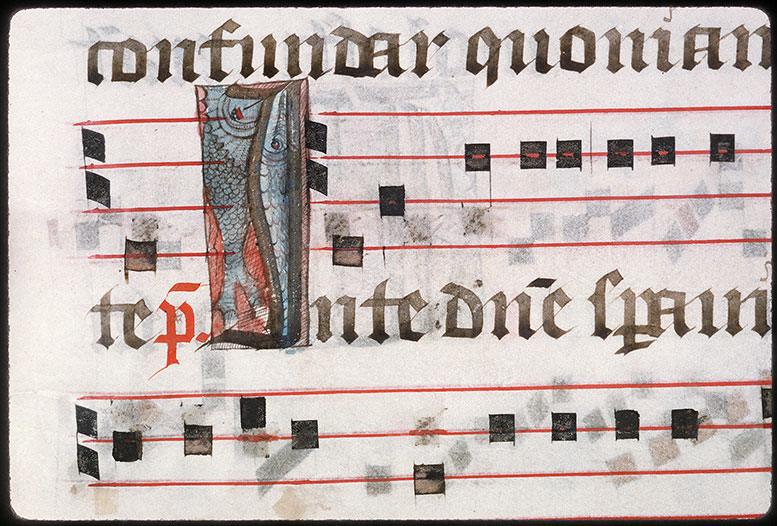 confundar quoniam
te p̄. Inte dn̄e sꝑaui